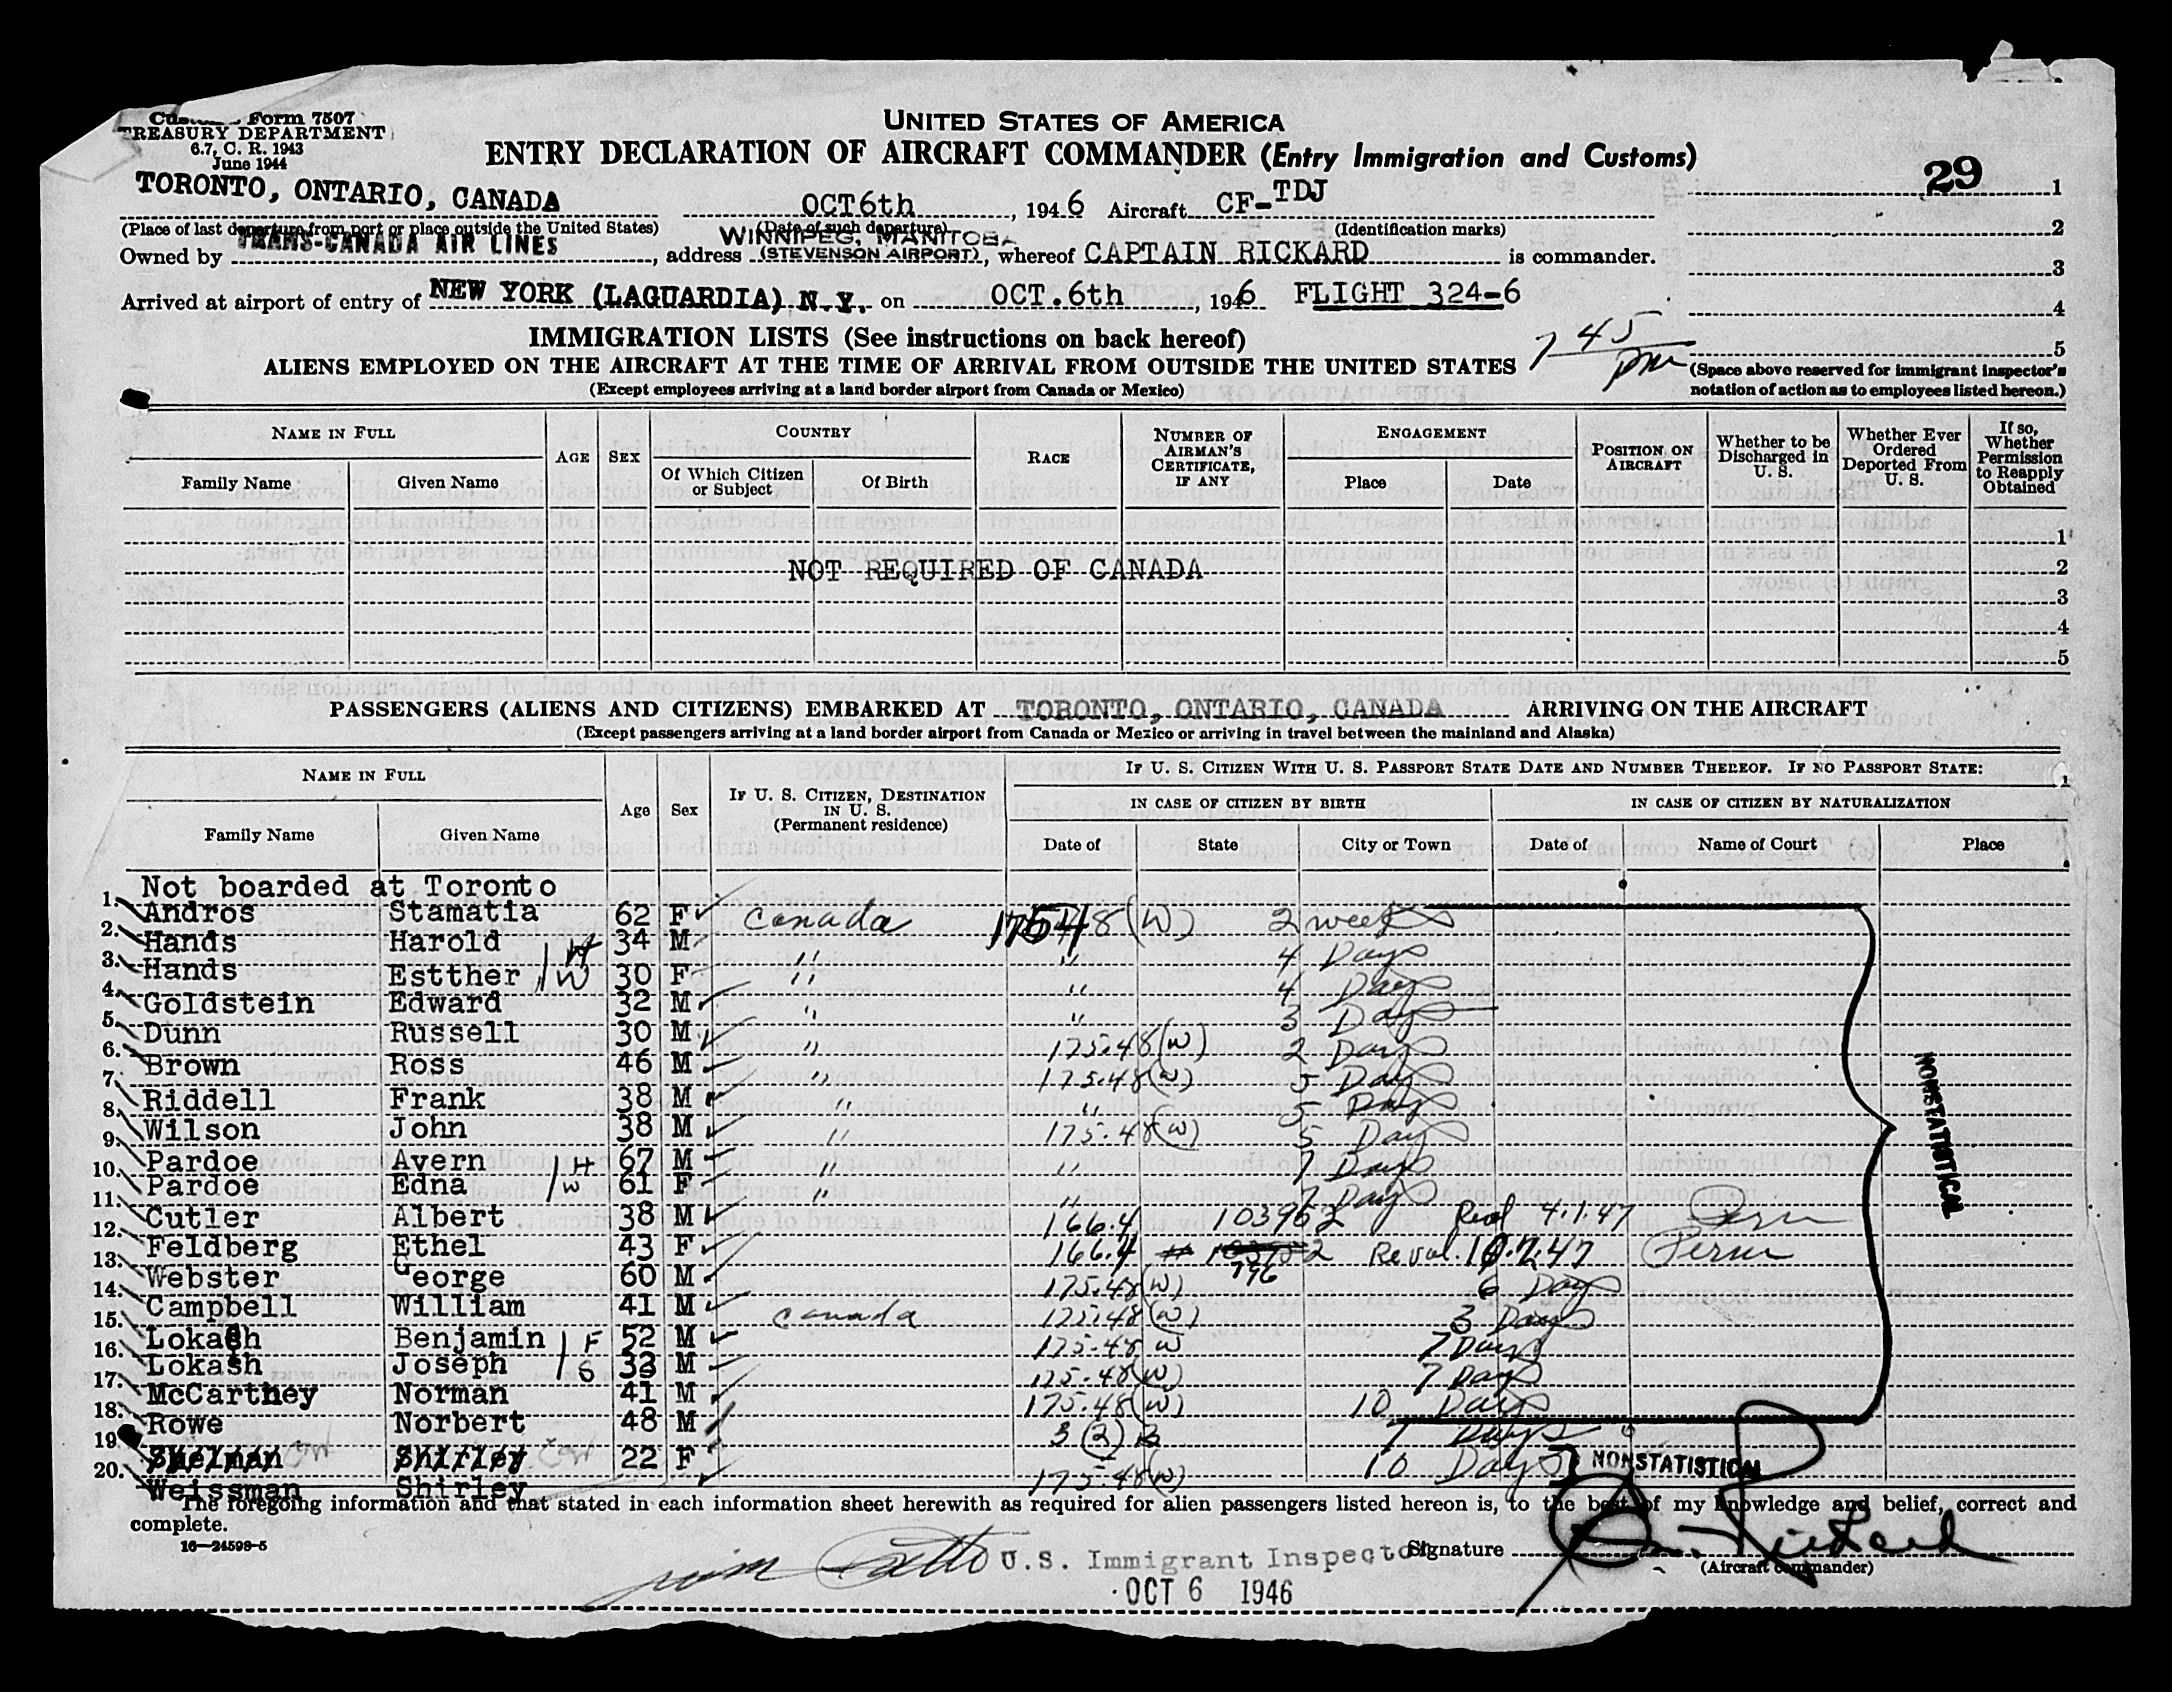 Form 7507
TREASURY DEPARTMENT
6.7, C. R. 1943
June 1944
UNITED STATES OF AMERICA
ENTRY DECLARATION OF AIRCRAFT COMMANDER (Entry Immigration and Customs)
29 1
TORONTO, ONTARIO, CANADA OCT 6th, 1946 Aircraft CF-TDJ
(Place of last departure from port or place outside the United States) (Date of such departure) (Identification marks) 2
WINNIPEG, MANITOBA
Owned by TRANS-CANADA AIR LINES, address (STEVENSON AIRPORT), whereof CAPTAIN RICKARD is commander.
3
Arrived at airport of entry of NEW YORK (LAGUARDIA) N.Y. on OCT.6th, 1946 FLIGHT 324-6
4
IMMIGRATION LISTS (See instructions on back hereof)
7 45 pm
5
ALIENS EMPLOYED ON THE AIRCRAFT AT THE TIME OF ARRIVAL FROM OUTSIDE THE UNITED STATES
(Space above reserved for immigrant inspector's
notation of action as to employees listed hereon.)
(Except employees arriving at a land border airport from Canada or Mexico)
NAME IN FULL
Family Name Given Name
AGE SEX
COUNTRY
Of Which Citizen or Subject Of Birth
RACE
NUMBER OF AIRMAN'S CERTIFICATE, IF ANY
ENGAGEMENT
Place Date
POSITION ON AIRCRAFT
Whether to be Discharged in U. S.
Whether Ever Ordered Deported From U. S.
If so, Whether Permission to Reapply Obtained
1
NOT REQUIRED OF CANADA 2
3
4
5
PASSENGERS (ALIENS AND CITIZENS) EMBARKED AT TORONTO, ONTARIO, CANADA ARRIVING ON THE AIRCRAFT
(Except passengers arriving at a land border airport from Canada or Mexico or arriving in travel between the mainland and Alaska)
NAME IN FULL
Family Name Given Name
Age Sex
IF U. S. CITIZEN, DESTINATION IN U. S. (Permanent residence)
IF U. S. CITIZEN WITH U. S. PASSPORT STATE DATE AND NUMBER THEREOF. IF NO PASSPORT STATE:
IN CASE OF CITIZEN BY BIRTH
Date of State City or Town
IN CASE OF CITIZEN BY NATURALIZATION
Date of Name of Court Place
Not boarded at Toronto
1. Andros Stamatia 62 F Canada 175.48 (W) 2 weeks
2. Hands Harold H 34 M " " 4 Days
3. Hands Estther W 30 F " " 4 Days
4. Goldstein Edward 32 M " " 3 Days
5. Dunn Russell 30 M " 175.48 (W) 2 Days
6. Brown Ross 46 M " 175.48 (W) 5 Days
7. Riddell Frank 38 M " " 5 Days
8. Wilson John 38 M " 175.48 (W) 5 Days
9. Pardoe Avern H 67 M " " 7 Days
10. Pardoe Edna W 61 F " " 7 Days
11. Cutler Albert 38 M 166.4 103962 Reval 4.1.47 Perm
12. Feldberg Ethel 43 F 166.4 # 796 Reval. 10.7.47 Perm
13. Webster George 60 M 175.48 (W) 6 Days
14. Campbell William 41 M Canada 175.48 (W) 3 Days
15. Lokash Benjamin F 52 M 175.48 W 7 Days
16. Lokash Joseph S 33 M 175.48 (W) 7 Days
17. McCarthey Norman 41 M 175.48 (W) 10 Days
18. Rowe Norbert 48 M 3 (2) B 7 Days
19 Shelman Shirley 22 F 10 Days
20. Weissman Shirley 175.48 (W)
NONSTATISTICAL
NONSTATISTICAL
The foregoing information and that stated in each information sheet herewith as required for alien passengers listed hereon is, to the best of my knowledge and belief, correct and
complete.
16—24598-5
U.S. Immigrant Inspector
Signature Rickard
(Aircraft commander)
OCT 6 1946